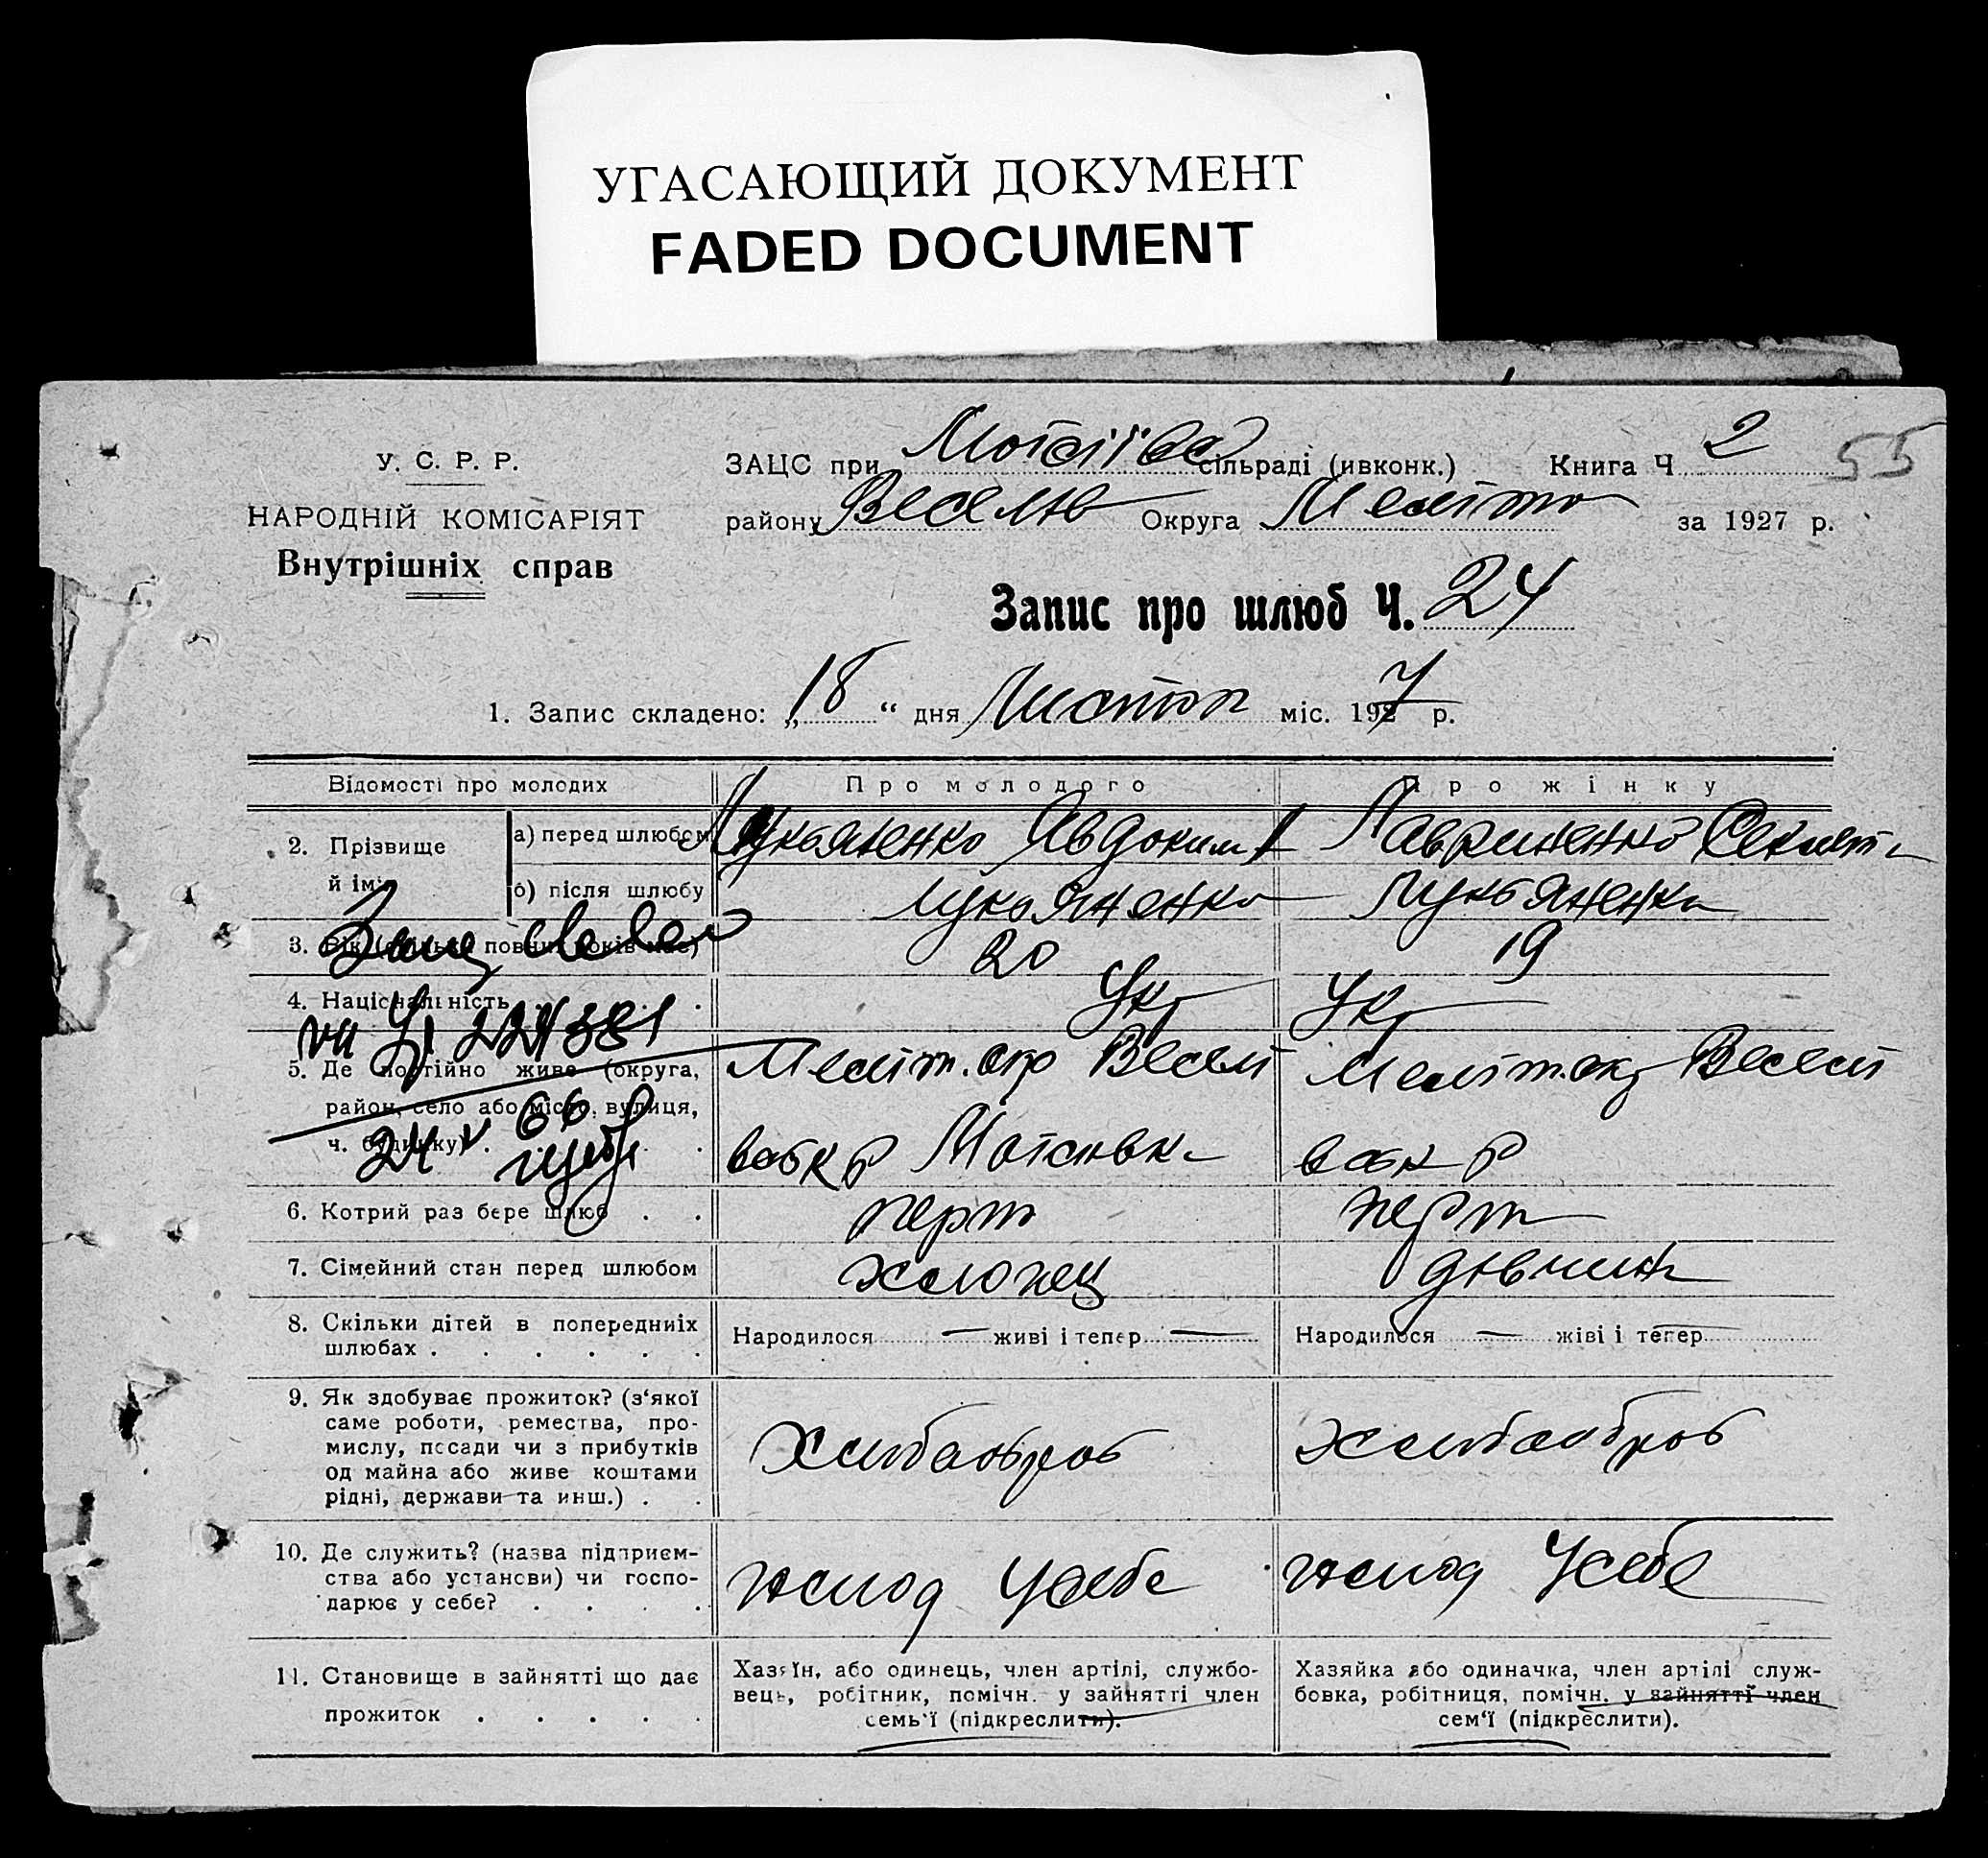 УГАСАЮЩИЙ ДОКУМЕНТ
FADED DOCUMENT
У. С. Р. Р.
НАРОДНІЙ КОМІСАРІЯТ
Внутрішніх справ
ЗАЦС при сільраді (ивконк.) Книга Ч 2 55
району Веселів Округа Меліто за 1927 р.
Запис про шлюб Ч. 24
1. Запис складено: „18“ дня Листоп міс. 1927 р.
Відомості про молодих Про молодого Про жінку
2. Прізвище й ім'я
а) перед шлюбом Лукьяненко Явдоким Лавриненко
б) після шлюбу Лукьяненко Лукьяненко
3. Вік (скільки повних років має) 20 19
4. Національність Укр Укр
5. Де постійно живе (округа, Меліт. окр Весел Меліт. окр Весел
район, село або місто, вулиця,
ч. будинку)
224381
24 V 66
6. Котрий раз бере шлюб перш перш
7. Сімейний стан перед шлюбом хлопец дівчина
8. Скільки дітей в попередниіх
шлюбах
Народилося — живі і тепер — Народилося — жіві і тепер
9. Як здобуває прожиток? (з'якої
саме роботи, ремества, про-
мислу, посади чи з прибутків
од майна або живе коштами
рідні, держави та инш.)
Хлібороб хлібороб
10. Де служить? (назва підприєм-
ства або установи) чи госпо-
дарює у себе?
господ Усебе господ Усебе
11. Становище в зайнятті що дає
прожиток
Хазяїн, або одинець, член артілі, службо-
вець, робітник, помічн. у зайнятті член
семь'ї (підкреслити).
Хазяйка або одиначка, член артілі служ-
бовка, робітниця, помічн. у зайнятті член
сем'ї (підкреслити).